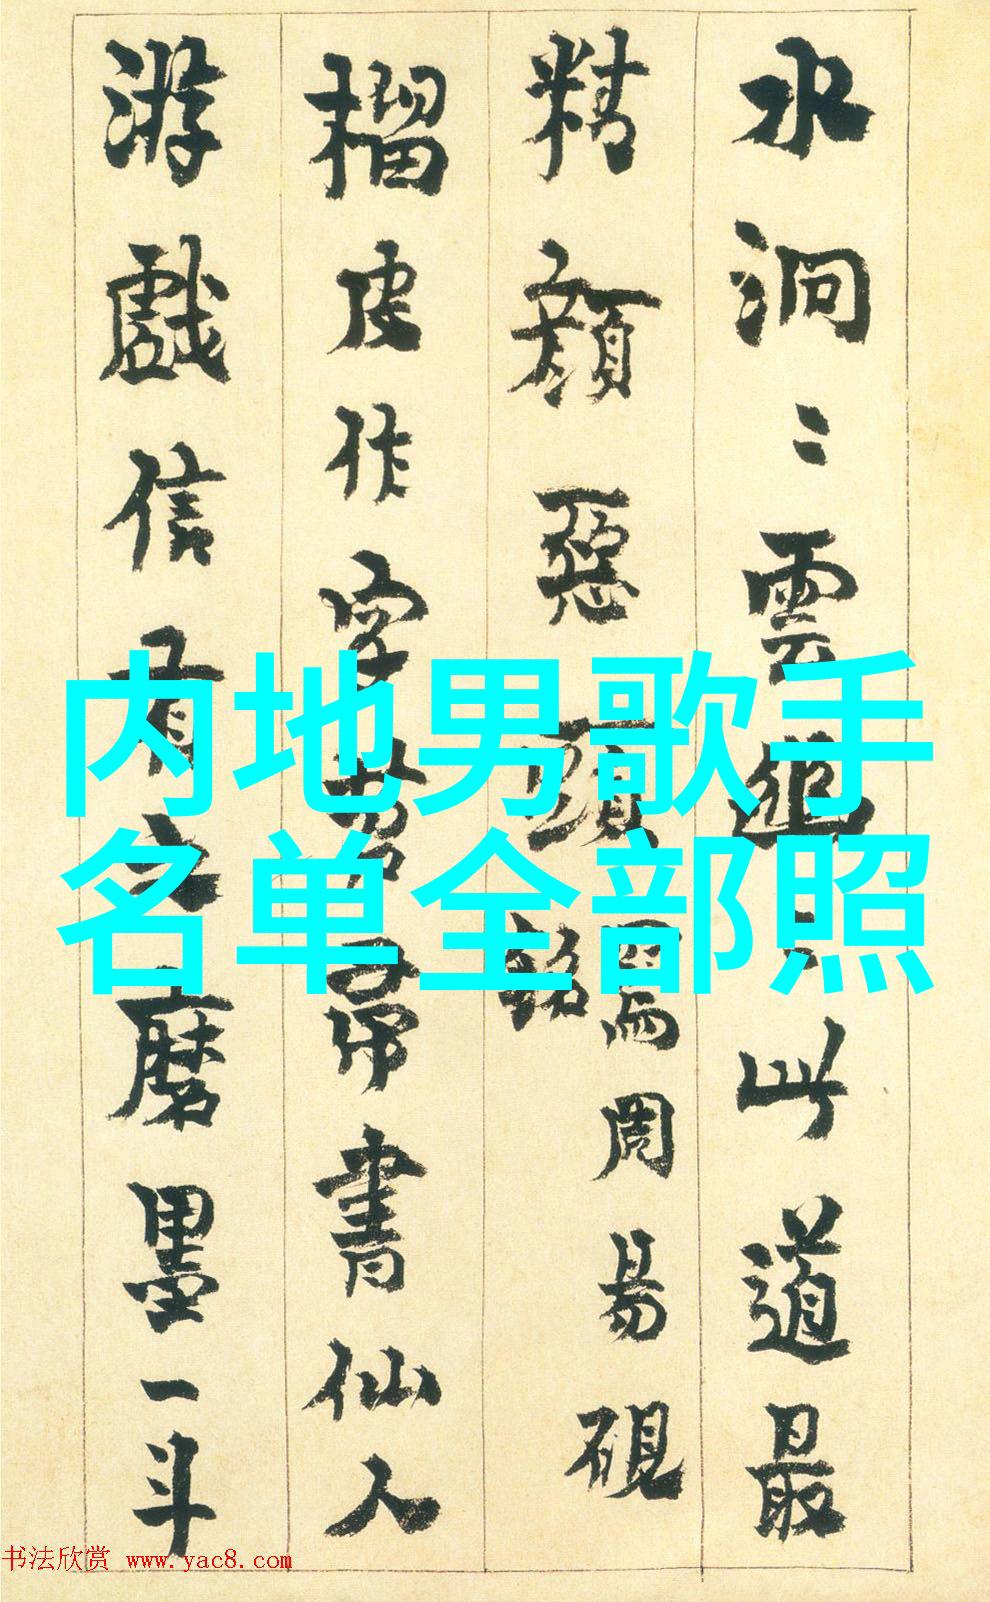 水洞〻雲遮〻此道最
精顏惡頭
銘
寫周易硯
榴皮作字苕帚書仙人
游戲信有之磨墨一斗
内地男歌手
名单全部照
书法欣赏 www.yac8.com